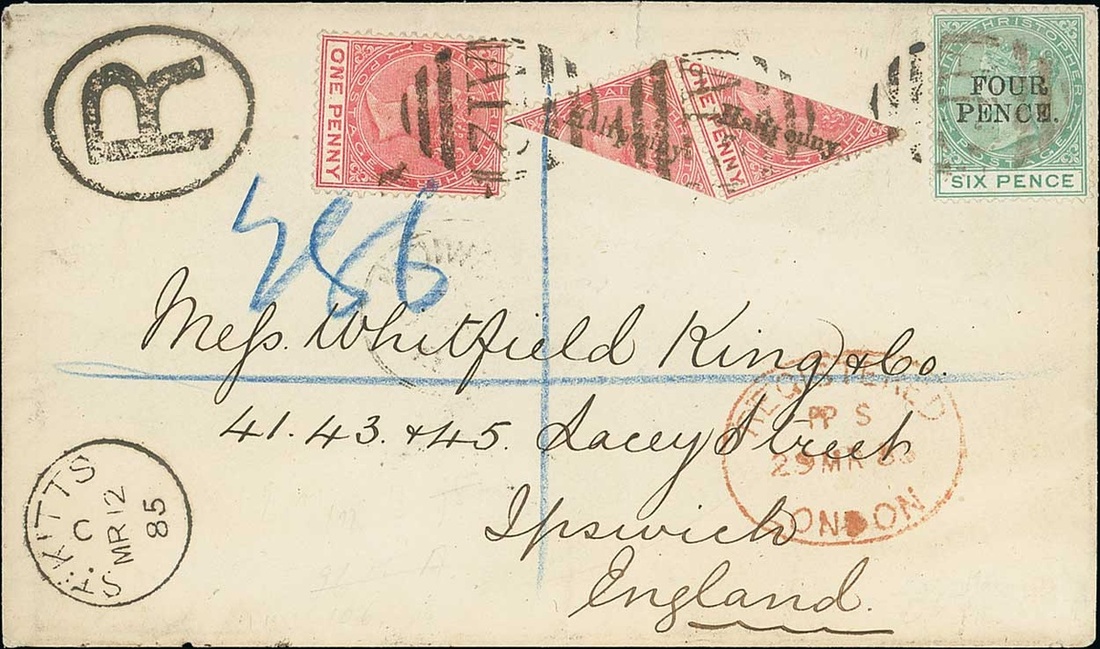 R
ONE PENNY
Halfpenny
ONE PENNY
Halfpenny
SAINT CHRISTOPHER
FOUR
PENCE.
POSTAGE
SIX PENCE
286
Mess. Whitfield King & Co.
41. 43. & 45. Lacey Street
Ipswich
England.
REGISTERED
29 MR 85
LONDON
ST. KITTS
C
MR 12
85